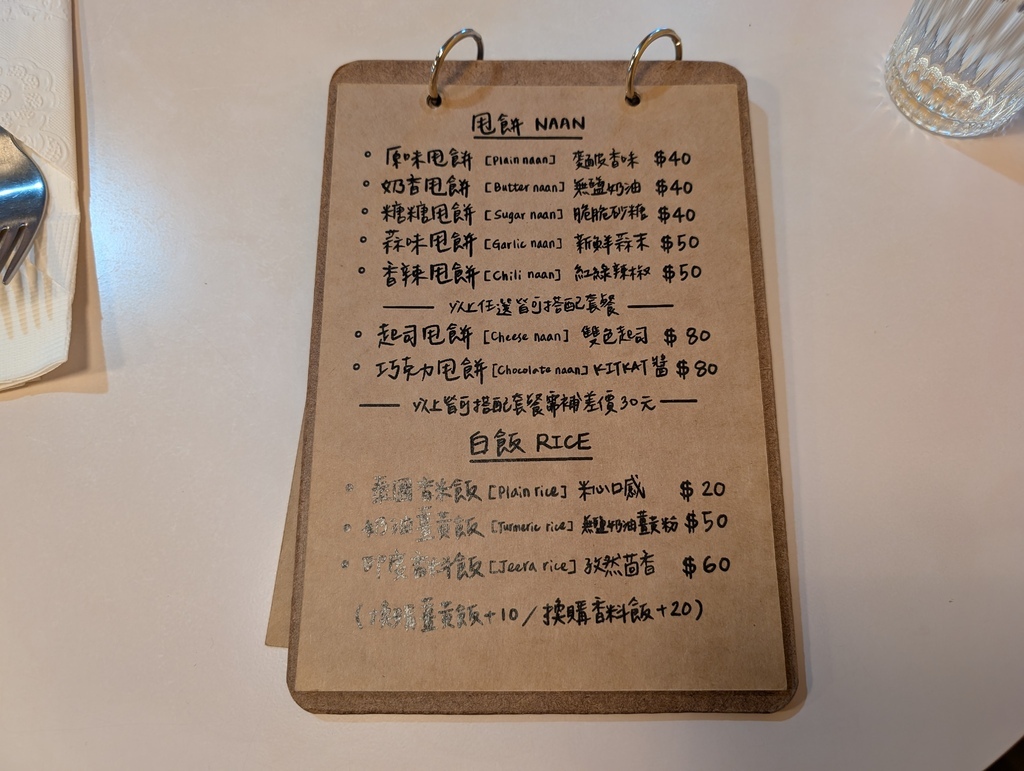 甩餅 NAAN
◦ 原味甩餅 [Plain naan] 麵皮香味 $40
◦ 奶香甩餅 [Butter naan] 無鹽奶油 $40
◦ 糖糖甩餅 [Sugar naan] 脆脆砂糖 $40
◦ 蒜味甩餅 [Garlic naan] 新鮮蒜末 $50
◦ 香辣甩餅 [Chili naan] 紅綠辣椒 $50
以上任選皆可搭配套餐
◦ 起司甩餅 [Cheese naan] 雙色起司 $80
◦ 巧克力甩餅 [Chocolate naan] KITKAT醬 $80
以上皆可搭配套餐需補差價30元
白飯 RICE
◦ 泰國香米飯 [Plain rice] 米心口感 $20
◦ 奶油薑黃飯 [Turmeric rice] 無鹽奶油薑黃粉 $50
◦ 印度香料飯 [Jeera rice] 孜然茴香 $60
(換購薑黃飯+10/換購香料飯+20)